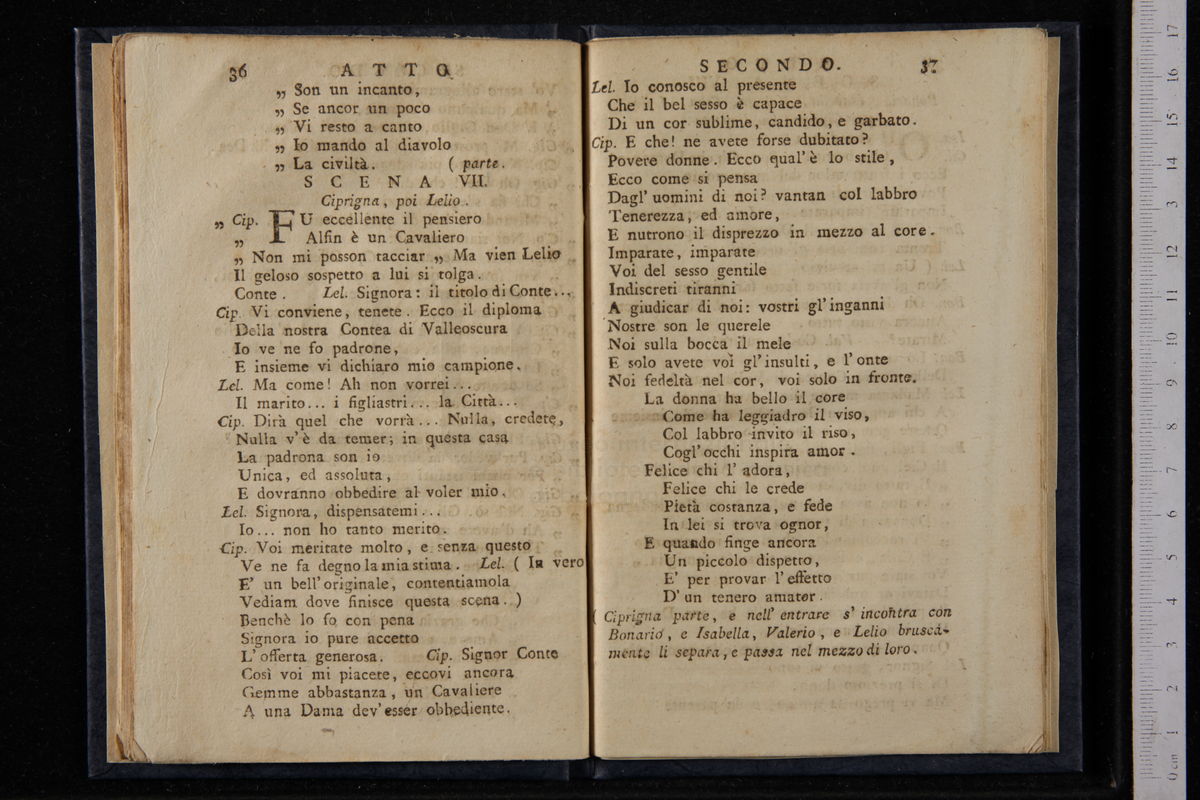 36 ATTO
„ Son un incanto,
„ Se ancor un poco
„ Vi resto a canto
„ Io mando al diavolo
„ La civiltà. ( parte.
SCENA VII.
Ciprigna, poi Lelio.
„ Cip. FU eccellente il pensiero
„ Alfin è un Cavaliero
„ Non mi posson tacciar „ Ma vien Lelio
Il geloso sospetto a lui si tolga.
Conte. Lel. Signora: il titolo di Conte...
Cip. Vi conviene, tenete. Ecco il diploma
Della nostra Contea di Valleoscura
Io ve ne fo padrone,
E insieme vi dichiaro mio campione.
Lel. Ma come! Ah non vorrei...
Il marito... i figliastri... la Città...
Cip. Dirà quel che vorrà... Nulla, credete,
Nulla v'è da temer; in questa casa
La padrona son io
Unica, ed assoluta,
E dovranno obbedire al voler mio.
Lel. Signora, dispensatemi...
Io... non ho tanto merito.
Cip. Voi meritate molto, e senza questo
Ve ne fa degno la mia stima. Lel. ( In vero
E' un bell'originale, contentiamola
Vediam dove finisce questa scena. )
Benchè lo fo con pena
Signora io pure accetto
L'offerta generosa. Cip. Signor Conte
Così voi mi piacete, eccovi ancora
Gemme abbastanza, un Cavaliere
A una Dama dev'esser obbediente.
SECONDO. 37
Lel. Io conosco al presente
Che il bel sesso è capace
Di un cor sublime, candido, e garbato.
Cip. E che! ne avete forse dubitato?
Povere donne. Ecco qual'è lo stile,
Ecco come si pensa
Dagl'uomini di noi? vantan col labbro
Tenerezza, ed amore,
E nutrono il disprezzo in mezzo al core.
Imparate, imparate
Voi del sesso gentile
Indiscreti tiranni
A giudicar di noi: vostri gl'inganni
Nostre son le querele
Noi sulla bocca il mele
E solo avete voi gl'insulti, e l'onte
Noi fedeltà nel cor, voi solo in fronte.
La donna ha bello il core
Come ha leggiadro il viso,
Col labbro invito il riso,
Cogl'occhi inspira amor.
Felice chi l'adora,
Felice chi le crede
Pietà costanza, e fede
In lei si trova ognor,
E quando finge ancora
Un piccolo dispetto,
E' per provar l'effetto
D'un tenero amator.
( Ciprigna parte, e nell'entrare s'incontra con
Bonario, e Isabella, Valerio, e Lelio brusca-
mente li separa, e passa nel mezzo di loro.